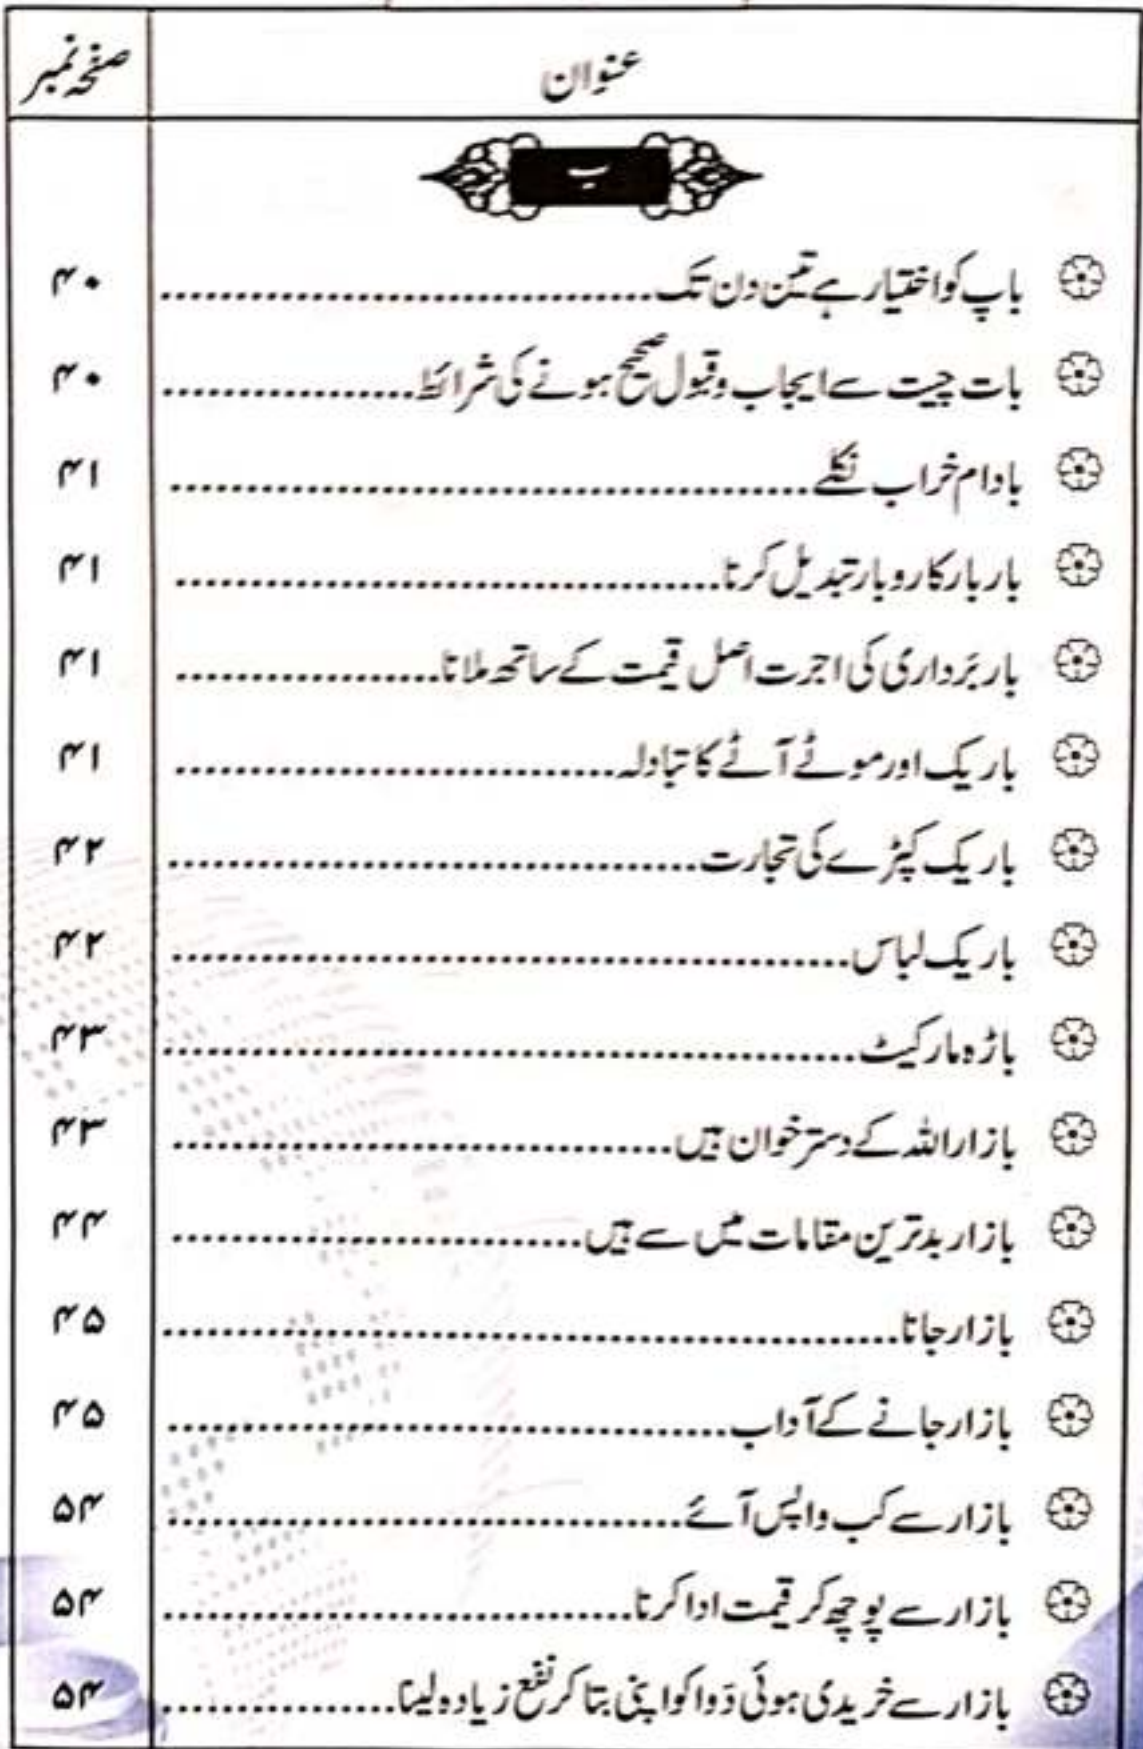 عنوان صفحہ نمبر
ب
باپ کو اختیار ہے تین دن تک ۴۰
بات چیت سے ایجاب وقبول صحیح ہونے کی شرائط ۴۰
بادام خراب نکلے ۴۱
بار بار کاروبار تبدیل کرنا ۴۱
باربَرداری کی اجرت اصل قیمت کے ساتھ ملانا ۴۱
باریک اور موٹے آٹے کا تبادلہ ۴۱
باریک کپڑے کی تجارت ۴۲
باریک لباس ۴۲
باڑہ مارکیٹ ۴۳
بازار اللہ کے دسترخوان ہیں ۴۳
بازار بدترین مقامات میں سے ہیں ۴۴
بازار جانا ۴۵
بازار جانے کے آداب ۴۵
بازار سے کب واپس آئے ۵۴
بازار سے پوچھ کر قیمت ادا کرنا ۵۴
بازار سے خریدی ہوئی دَوا کو اپنی بتا کر نفع زیادہ لینا ۵۴